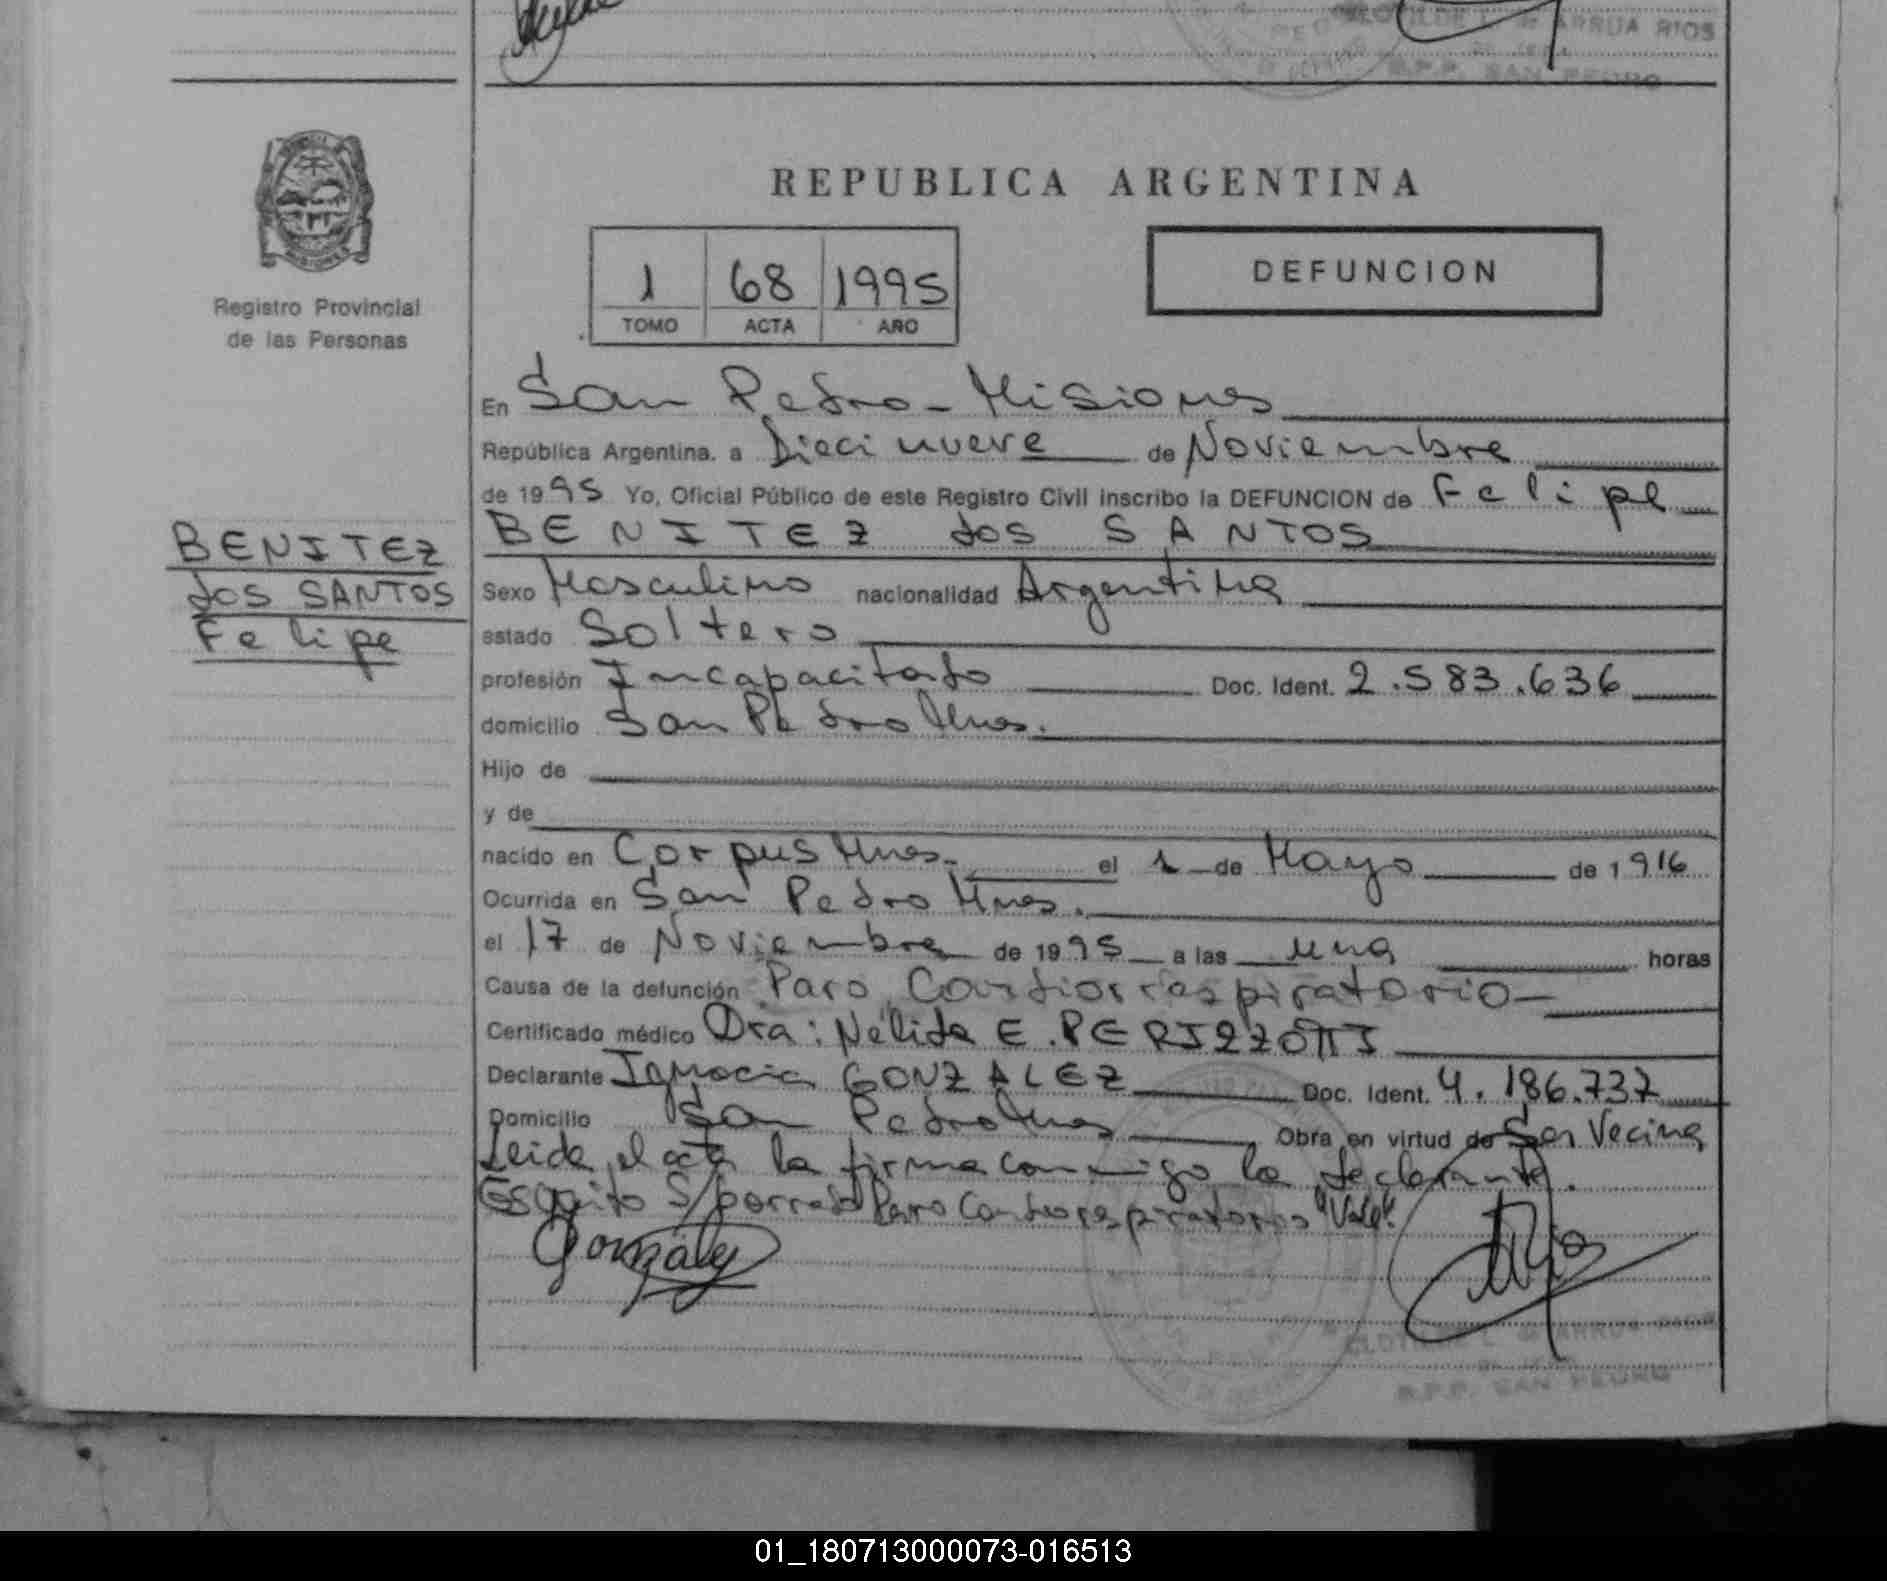 CLOTILDE L. de ARRUA RIOS
R.P.P. SAN PEDRO
Registro Provincial
de las Personas
REPUBLICA ARGENTINA
1 68 1995
TOMO ACTA AÑO
DEFUNCION
En San Pedro - Misiones
República Argentina, a Dieci nueve de Noviembre
de 1995 Yo, Oficial Público de este Registro Civil inscribo la DEFUNCION de Felipe
BENITEZ dos SANTOS
BENITEZ
dos SANTOS
Felipe
Sexo Masculino nacionalidad Argentina
estado Soltero
profesión Incapacitado Doc. Ident. 2.583.636
domicilio San Pedro Mnes.
Hijo de
y de
nacido en Corpus Mnes. el 1 de Mayo de 1916
Ocurrida en San Pedro Mnes.
el 17 de Noviembre de 1995 a las una horas
Causa de la defunción Paro Cardiorrespiratorio
Certificado médico Dra: Nélida E. PERIZZOTTI
Declarante Ignacia GONZALEZ Doc. Ident. 4.186.737
Domicilio San Pedro Mnes Obra en virtud de Ser Vecina
Leida el acta la firma conmigo la declarante.
Escrito S/borrado Paro Cardiorespiratorio "Vale".
González
CLOTILDE L. de ARRUA RIOS
R.P.P. SAN PEDRO
01_180713000073-016513